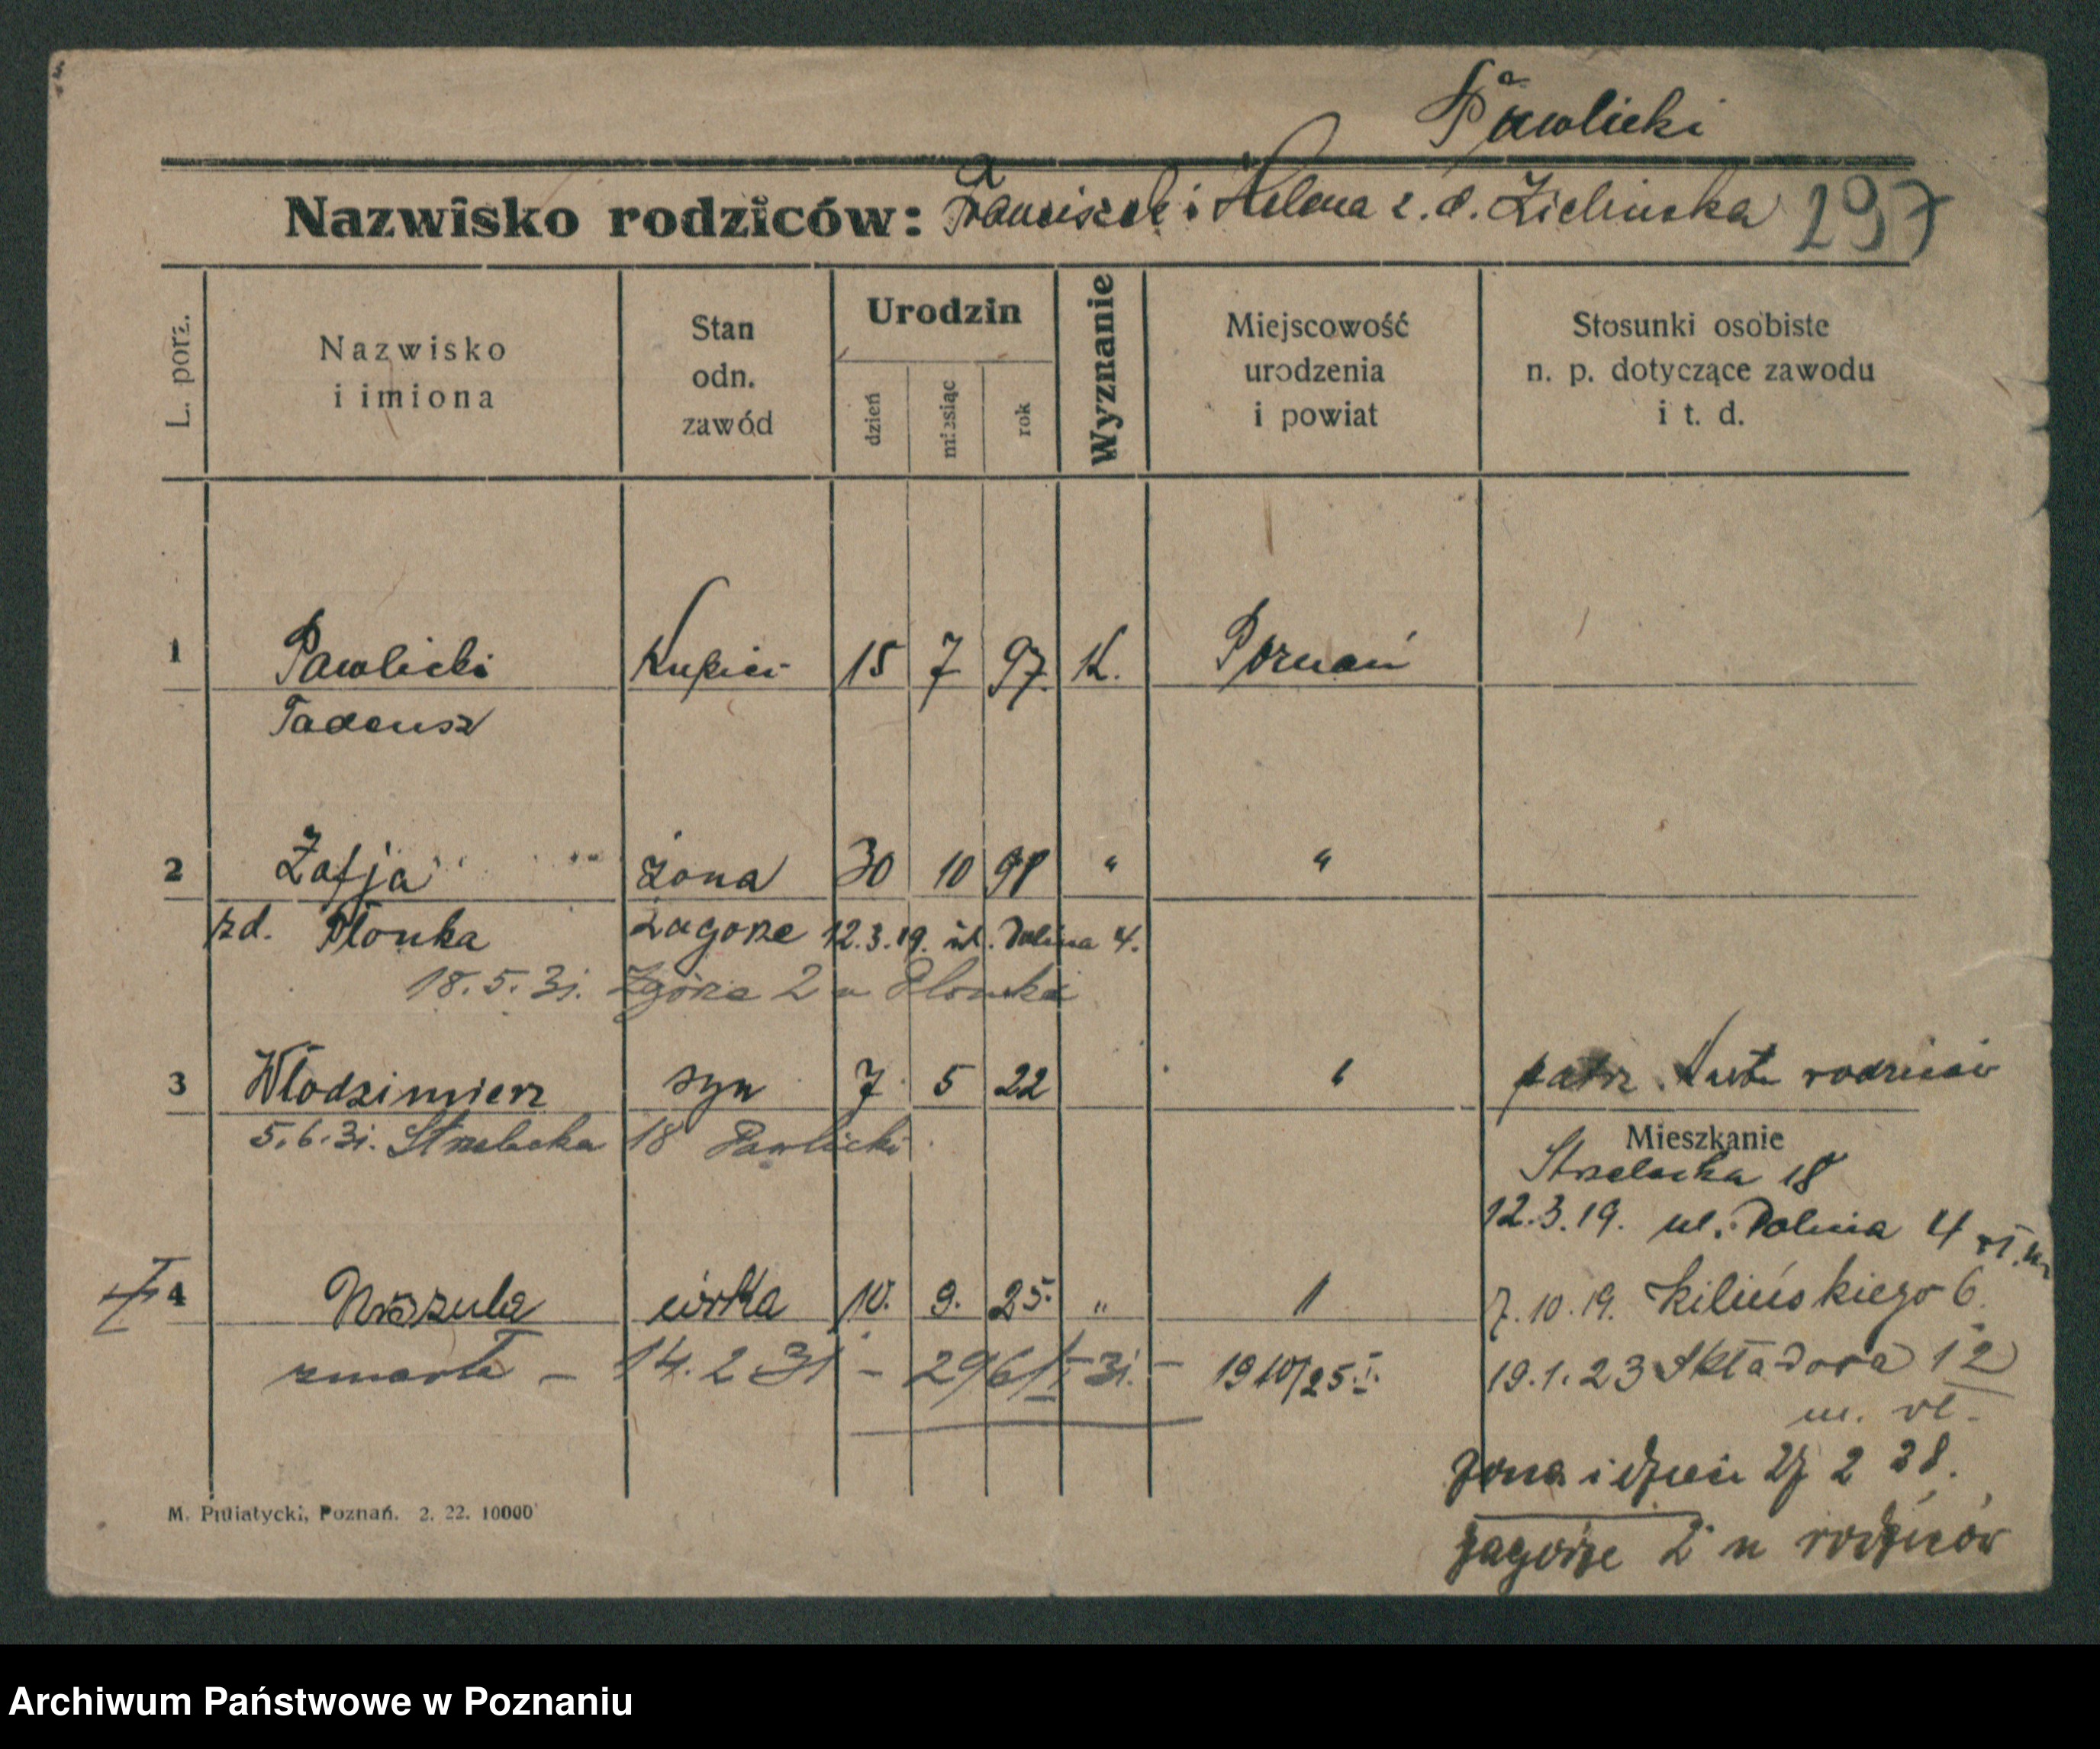 Pawlicki
Nazwisko rodziców: Franciszek i Helena z. d. Zielińska 297
L. porz.
Nazwisko i imiona
Stan odn. zawód
Urodzin
dzień
miesiąc
rok
Wyznanie
Miejscowość urodzenia i powiat
Stosunki osobiste n. p. dotyczące zawodu i t. d.
1 Pawlicki Kupiec 15 7 97. K. Poznań
Tadeusz
2 Zofja żona 30 10 98 " "
zd. Płonka Zagorze 12.3.19. ul. Dolina 4.
18.5.31. Zgórze 2 u Płonka
3 Włodzimierz syn 7 5 22 " patrz Karta rodziców
5.6.31. Strzelecka 18 Pawlicki
Mieszkanie
Strzelecka 18
12.3.19. ul. Dolina 4
4 Urszula córka 10. 9. 25. "
7.10.19. Kilińskiego 6.
zmarła – 14.2 31 –
19.1.23 Składowa 12
m. wł.
żona i dzieci 27 2 28.
Zagórze 2 u rodziców
M. Putiatycki, Poznań. 2. 22. 10000
Archiwum Państwowe w Poznaniu